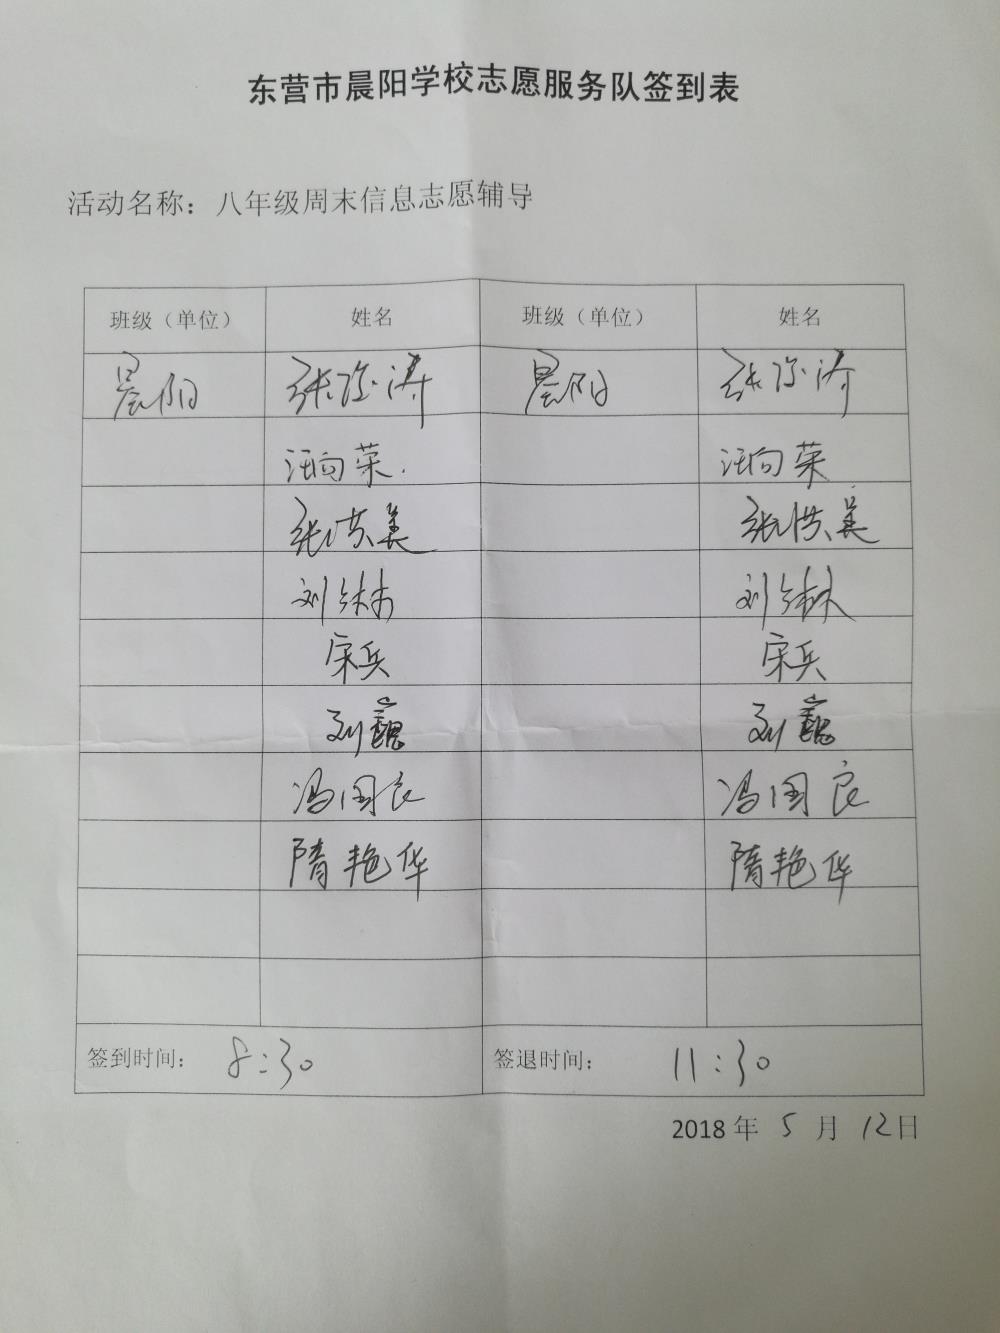 东营市晨阳学校志愿服务队签到表
活动名称：八年级周末信息志愿辅导
班级（单位） 姓名 班级（单位） 姓名
晨阳 张 涛 晨阳 张 涛
汪向荣 汪向荣
张洪美 张洪美
刘 林 刘 林
宋兵 宋兵
刘巍 刘巍
冯国良 冯国良
隋艳华 隋艳华
签到时间： 8:30 签退时间： 11:30
2018年 5 月 12日